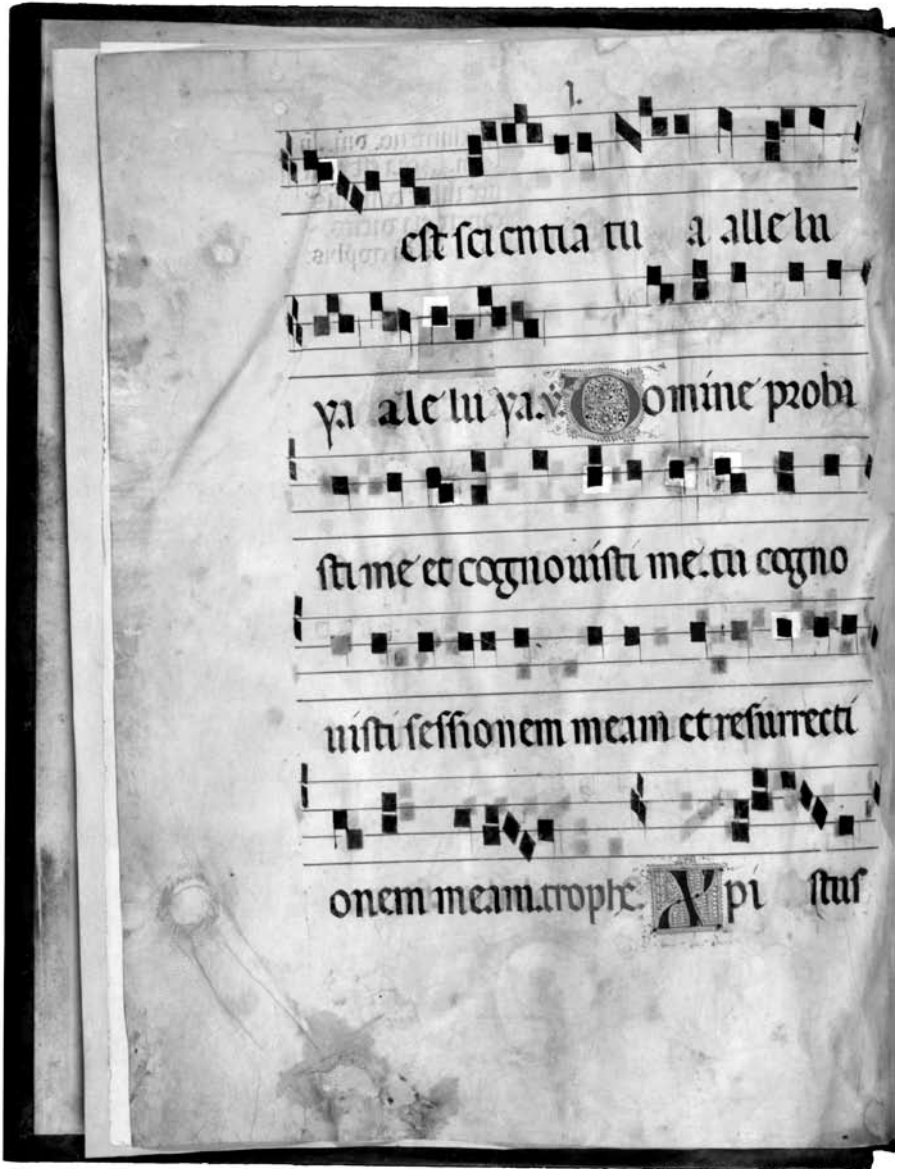 est scientia tu a alle lu
ya ale lu ya. v. Domine proba
sti me et cognouisti me. tu cogno
uisti sessionem meam et resurrecti
onem meam. trophe. Xpi stus